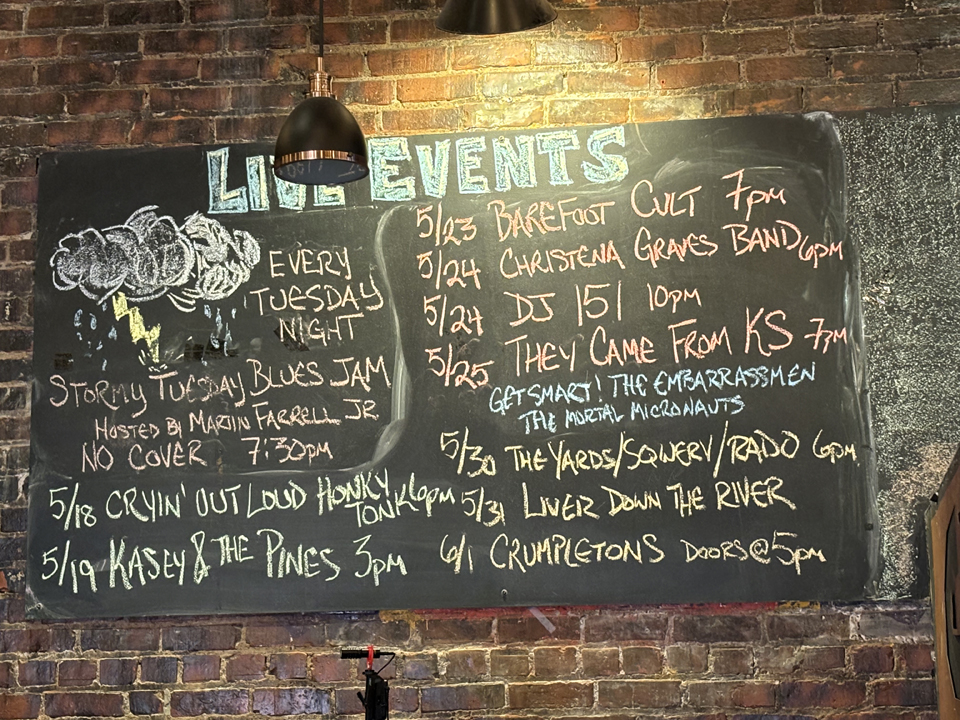 LIVE EVENTS
EVERY
TUESDAY
NIGHT
STORMY TUESDAY BLUES JAM
HOSTED BY MARTIN FARRELL JR
NO COVER 7:30PM
5/18 CRYIN' OUT LOUD HONKY
TONK 6PM
5/19 KASEY & THE PINES 3PM
5/23 BAREFOOT CULT 7PM
5/24 CHRISTENA GRAVES BAND 6PM
5/24 DJ 151 10PM
5/25 THEY CAME FROM KS 7PM
GET SMART! THE EMBARRASSMEN
THE MORTAL MICRONAUTS
5/30 THE YARDS/SQWERV/RADO 6PM
5/31 LIVER DOWN THE RIVER
6/1 CRUMPLETONS DOORS@5PM